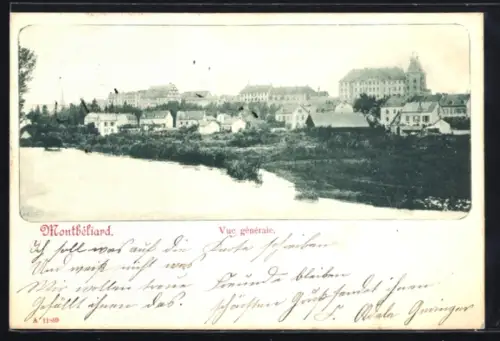 Montbéliard. Vue générale.
Ich soll was auf die Karte schreiben
Und weiß nicht was
Wir wollen treue Freunde bleiben
Gefällt ihnen das.
schönsten Gruß sendet ihnen
Adele